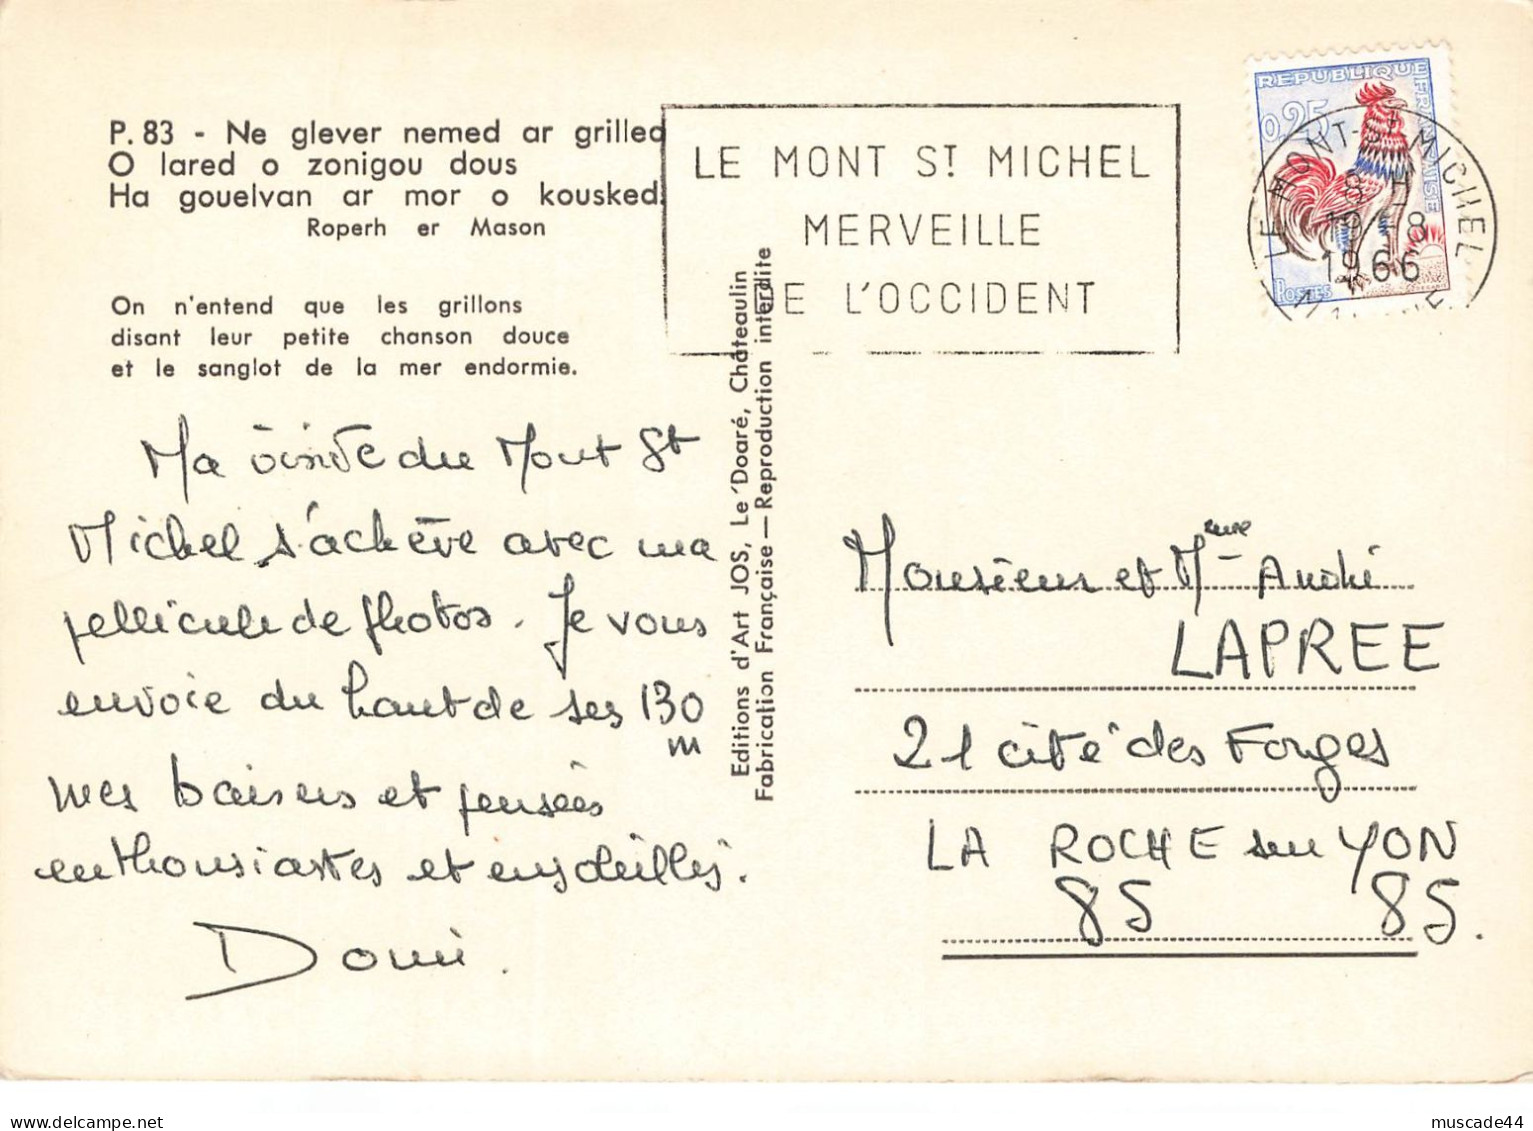 P. 83 - Ne glever nemed ar grilled
O lared o zonigou dous
Ha gouelvan ar mor o kousked.
Roperh er Mason
On n'entend que les grillons
disant leur petite chanson douce
et le sanglot de la mer endormie.
Ma visite du Mont St
Michel s'achève avec ma
pellicule de photos. Je vous
envoie du haut de ses 130
m
mes baisers et pensées
enthousiastes et ensoleillés.
Domi.
Editions d'Art JOS, Le Doaré, Châteaulin
Fabrication Française — Reproduction interdite
LE MONT ST MICHEL
MERVEILLE
DE L'OCCIDENT
REPUBLIQUE FRANÇAISE
0,25
POSTES
LE MONT-ST MICHEL
8 H
19-8
1966
MANCHE
Monsieur et Mme André
LAPREE
21 cité des Forges
LA ROCHE sur YON
85 85.
muscade44